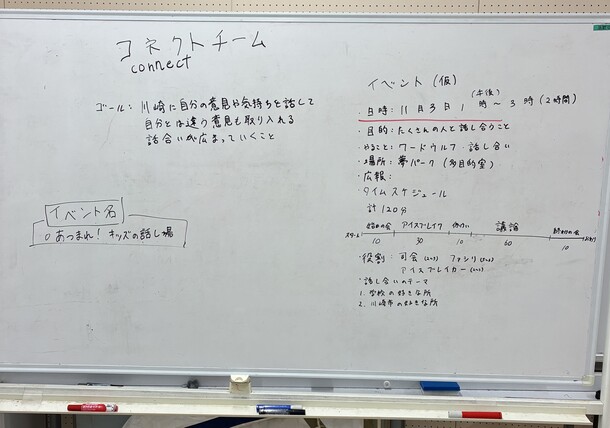 コネクトチーム
connect
ゴール：川崎に自分の意見や気持ちを話して
自分とは違う意見も取り入れる
話合いが広まっていくこと
イベント名
○あつまれ！キッズの話し場
イベント(仮)
(午後)
・日時：11月3日1時〜3時(2時間)
・目的：たくさんの人と話し合うこと
・やること：ワードウルフ・話し合い
・場所：夢パーク(多目的室)
・広報：
・タイムスケジュール
計120分
始めの会 アイスブレイク 休けい 議論 終わりの会
スタート
10 30 10 60 10
・役割：司会 ファシリ
アイスブレイカー
・話し合いのテーマ
1. 学校の好きな所
2. 川崎市の好きな所